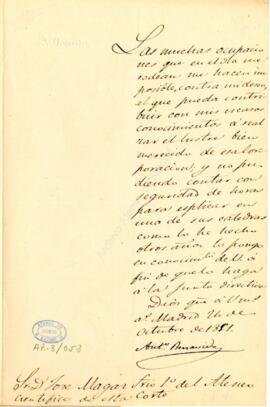 Las muchas ocupacio
nes que en el dia me
rodean me hacen im
posible, contra mi deseo,
el que pueda contri
buir con mis escasos
conocimientos á real
zar el lustre bien
merecido de esa Cor
poracion; y no pu
diendo contar con
seguridad de horas
para esplicar en
una de sus catedras
como lo he hecho
otros años lo pongo
en conocimto de V. á
fin de que lo haga
á la Junta directiva
Dios gue á V. ms
as Madrid 24 de
Octubre de 1851.
Anto Benavides
AP-3/053
Sr. D. José Magaz Srio 1o del Ateneo
cientifico de esta Corte